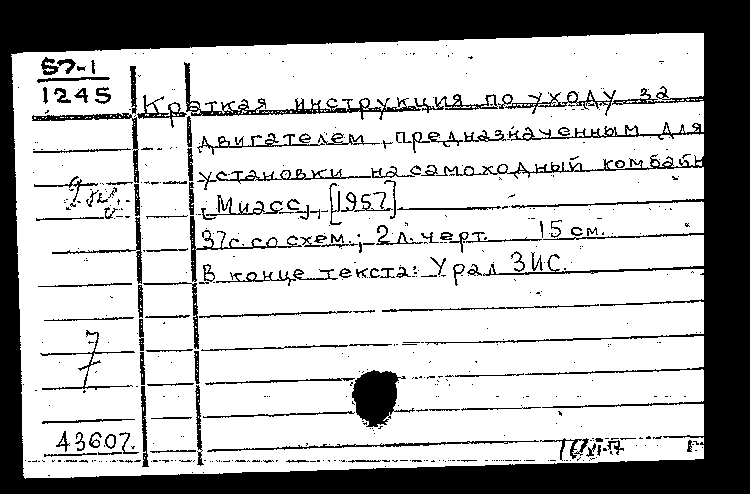 57-1
1245
Краткая инструкция по уходу за
двигателем, предназначенным для
установки на самоходный комбайн
[Миасс], [1957].
37с. со схем.; 2 л. черт. 15 см.
В конце текста: Урал ЗИС.
7
43607.